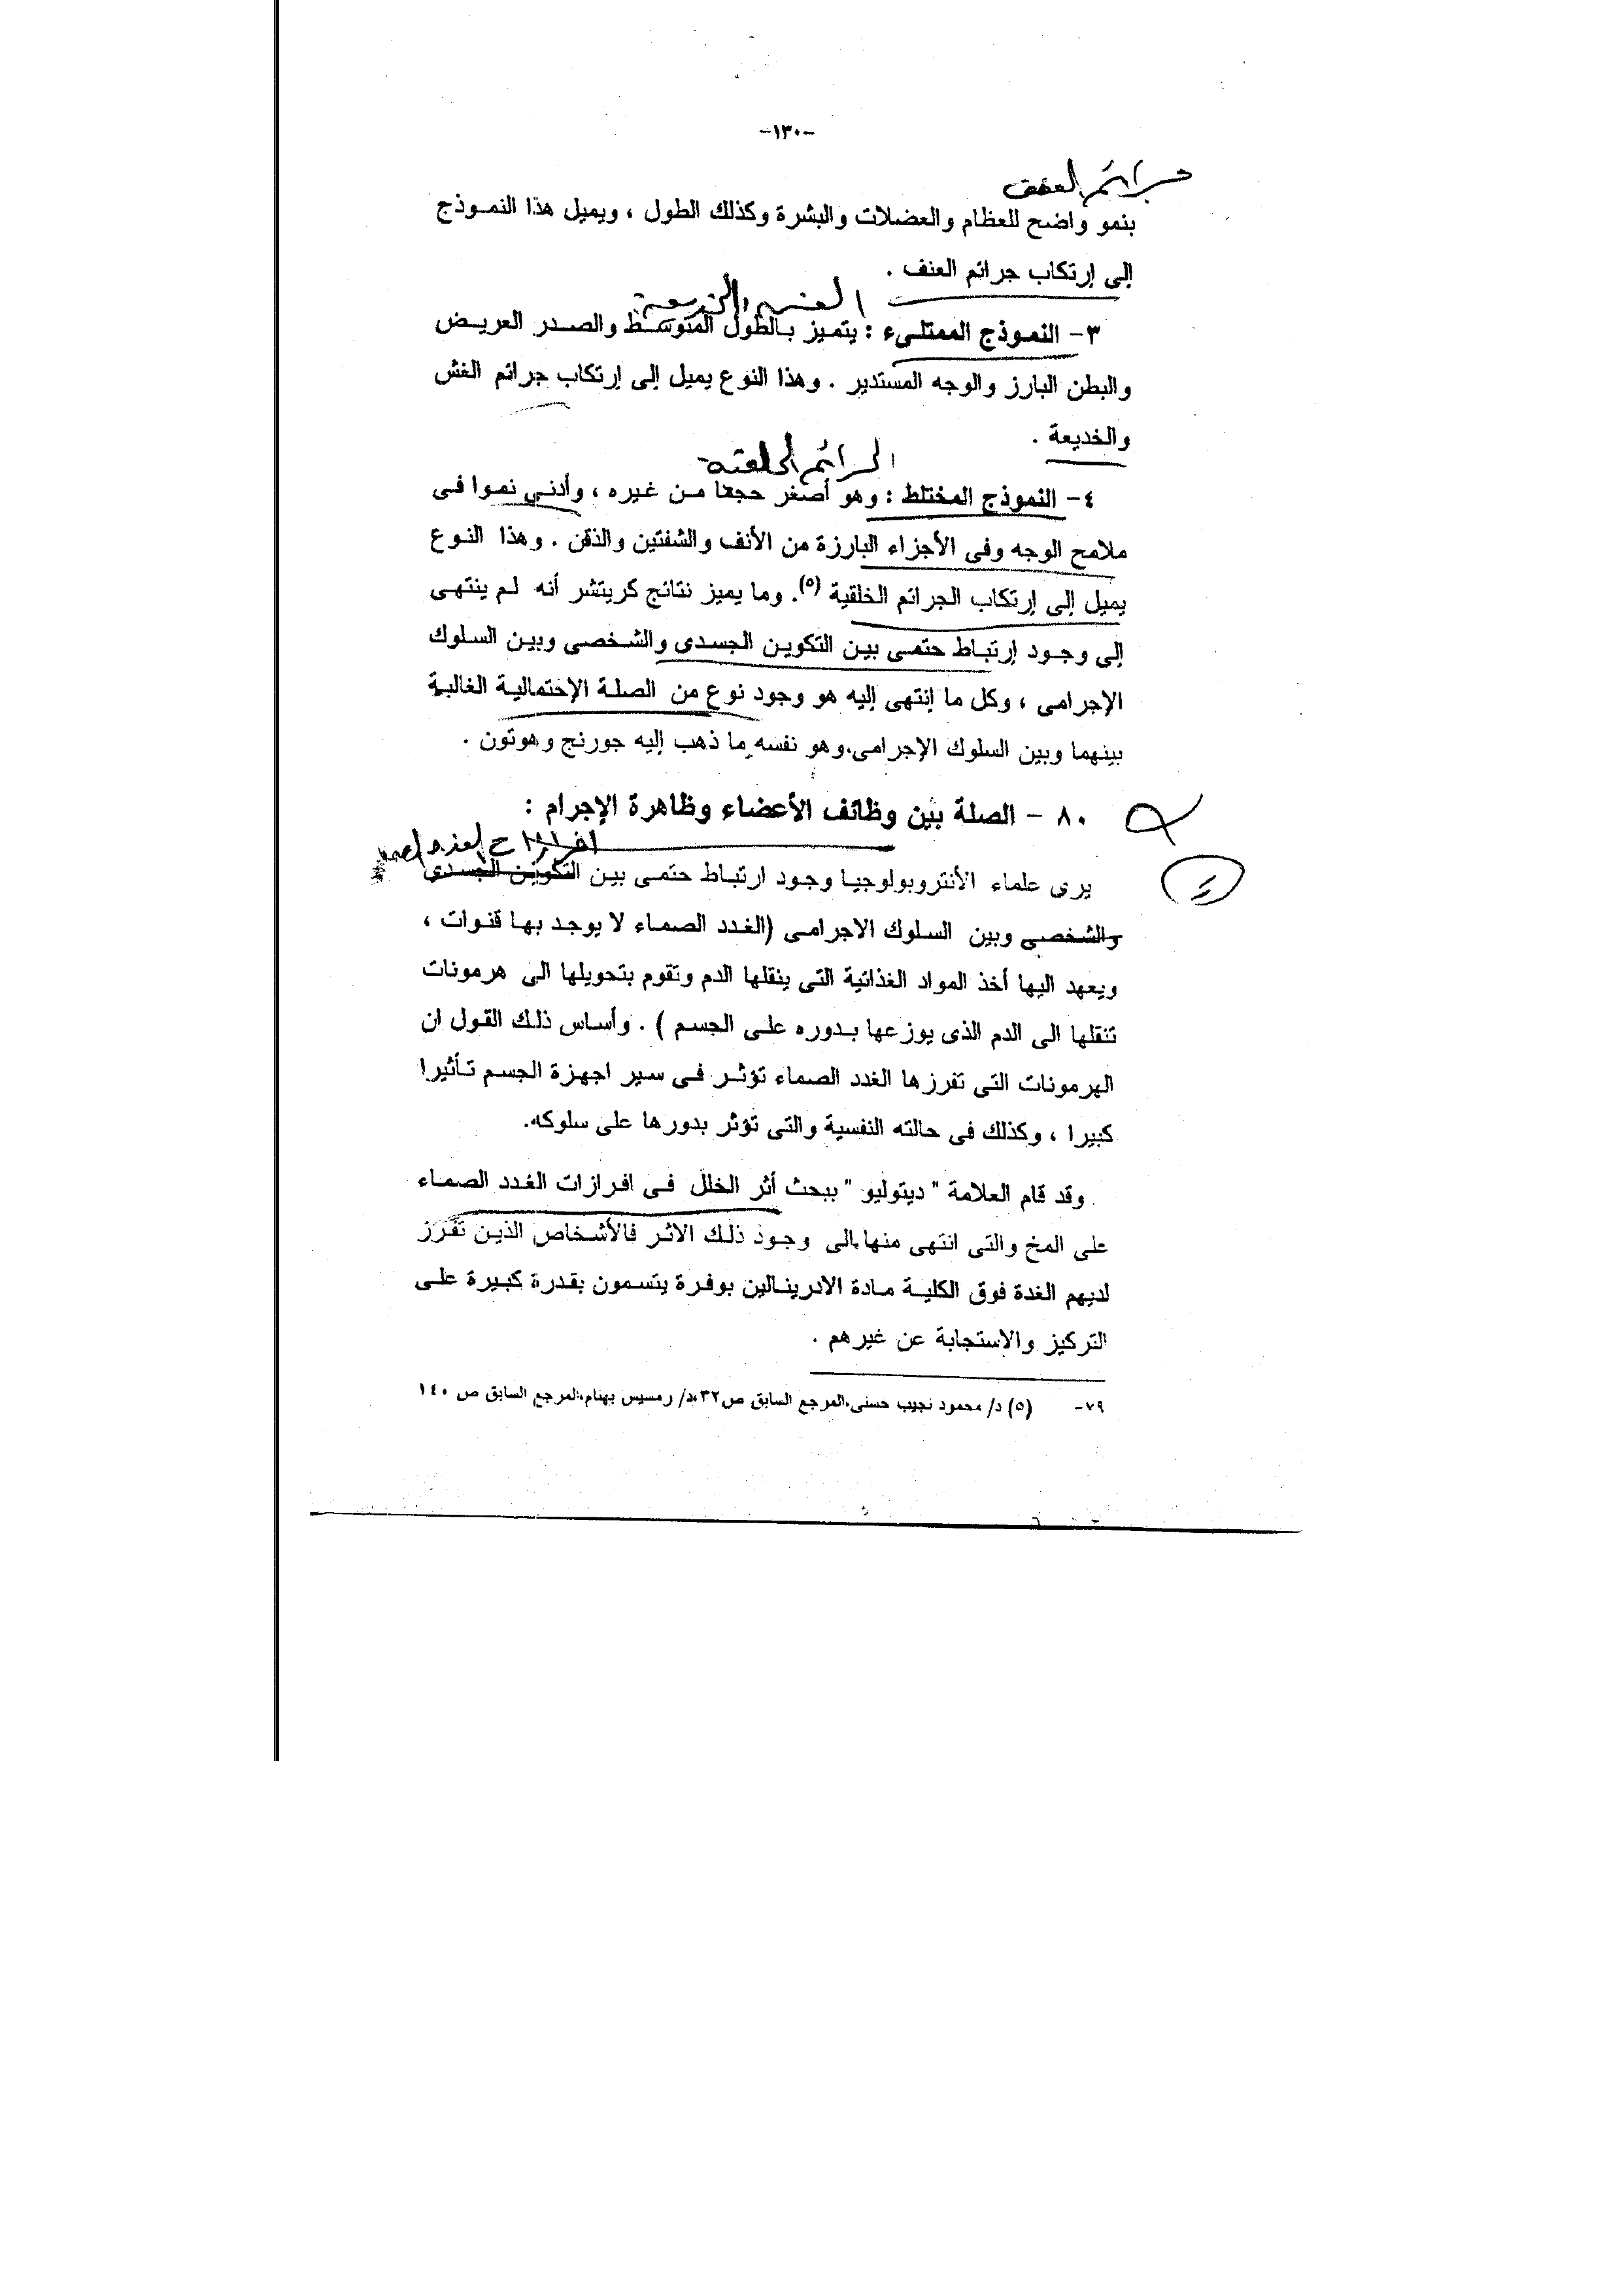 -١٣٠-
جرائم العنف
بنمو واضح للعظام والعضلات والبشرة وكذلك الطول ، ويميل هذا النموذج
إلى إرتكاب جرائم العنف .
الغش والخديعة
٣- النموذج الممتلىء : يتميز بالطول المتوسط والصدر العريض
والبطن البارز والوجه المستدير . وهذا النوع يميل إلى إرتكاب جرائم الغش
والخديعة .
الجرائم الخلقية
٤- النموذج المختلط : وهو أصغر حجما من غيره ، وأدنى نموا فى
ملامح الوجه وفى الأجزاء البارزة من الأنف والشفتين والذقن . وهذا النوع
يميل إلى إرتكاب الجرائم الخلقية (٥). وما يميز نتائج كريتشر أنه لم ينتهى
إلى وجود إرتباط حتمى بين التكوين الجسدى والشخصى وبين السلوك
الإجرامى ، وكل ما إنتهى إليه هو وجود نوع من الصلة الإحتمالية الغالبة
بينهما وبين السلوك الإجرامى،وهو نفسه ما ذهب إليه جورنج وهوتون .
٨٠ - الصلة بين وظائف الأعضاء وظاهرة الإجرام :
يرى علماء الأنتروبولوجيا وجود ارتباط حتمى بين التكوين الجسدى
والشخصى وبين السلوك الاجرامى (الغدد الصماء لا يوجد بها قنوات ،
ويعهد اليها أخذ المواد الغذائية التى ينقلها الدم وتقوم بتحويلها الى هرمونات
تنقلها الى الدم الذى يوزعها بدوره على الجسم ) . وأساس ذلك القول ان
الهرمونات التى تفرزها الغدد الصماء تؤثر فى سير اجهزة الجسم تأثيرا
كبيرا ، وكذلك فى حالته النفسية والتى تؤثر بدورها على سلوكه.
وقد قام العلامة " ديتوليو " ببحث أثر الخلل فى افرازات الغدد الصماء
على المخ والتى انتهى منها الى وجود ذلك الاثر فالأشخاص الذين تفرز
لديهم الغدة فوق الكلية مادة الادرينالين بوفرة يتسمون بقدرة كبيرة على
التركيز والاستجابة عن غيرهم .
٧٩- (٥) د/ محمود نجيب حسنى،المرجع السابق ص٣٢،د/ رمسيس بهنام،المرجع السابق ص ١٤٠